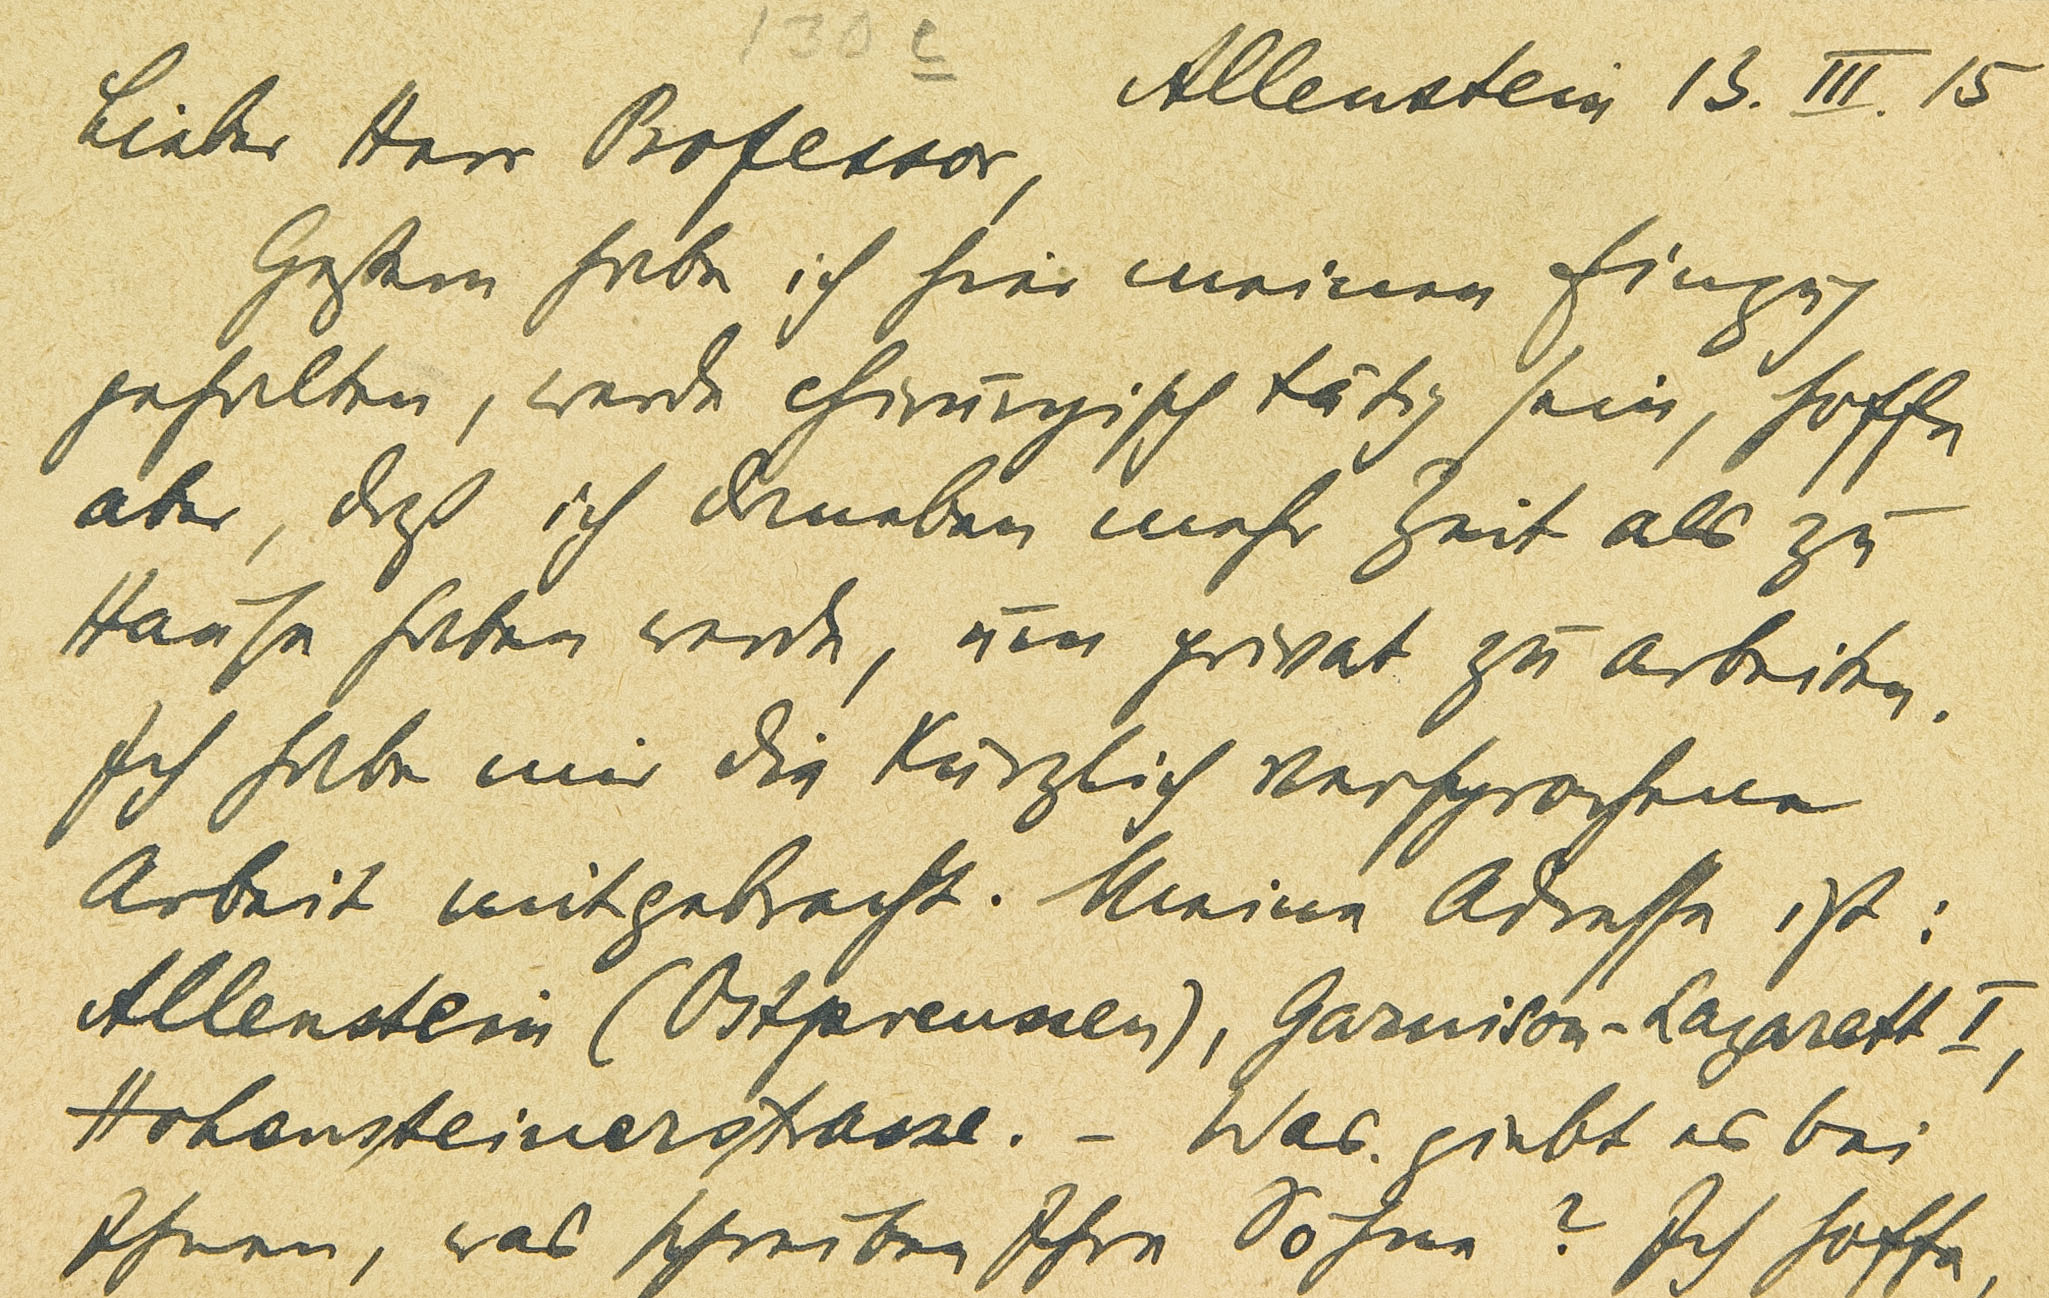 130 c
Allenstein 13. III. 15
Lieber Herr Professor,
Gestern habe ich hier meinen Einzug
gehalten, werde chirurgisch tätig sein, hoffe
aber, daß ich daneben mehr Zeit als zu
Hause haben werde, um privat zu arbeiten.
Ich habe mir die kürzlich versprochene
Arbeit mitgebracht. Meine Adresse ist:
Allenstein (Ostpreussen), Garnison-Lazarett I,
Hohensteinerstrasse. - Was giebt es bei
Ihnen, was schreiben Ihre Söhne? Ich hoffe,